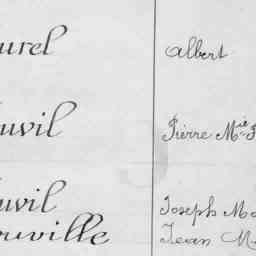 urel Albert
uvil Pierre Mie
uvil Joseph Ma
ouville Jean M